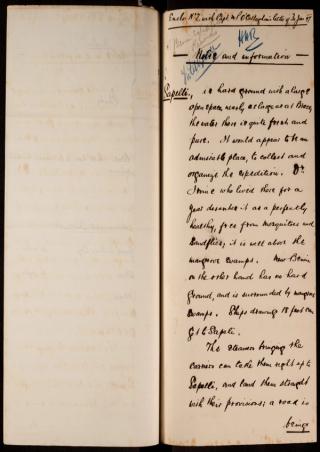 Enclo. No 2 with Capt. O'Callaghan's letter of 3 Jan 97
Notes and information
Sapelli, is hard ground with a large
open space nearly as large as at Brass,
the water there is quite fresh and
pure. It would appear to be an
admirable place, to collect and
organize the expedition. Dr
Irvine who lived there for a
year describes it as a perfectly
healthy, free from mosquitoes and
sandflies, it is well above the
mangrove swamps. New Benin
on the other hand has no hard
ground, and is surrounded by mangrove
swamps. Ships drawing 18 feet can
get to Sapele.
The steamer bringing the
carriers can take them right up to
Sapelli, and land them straight
with their provisions; a road is
being